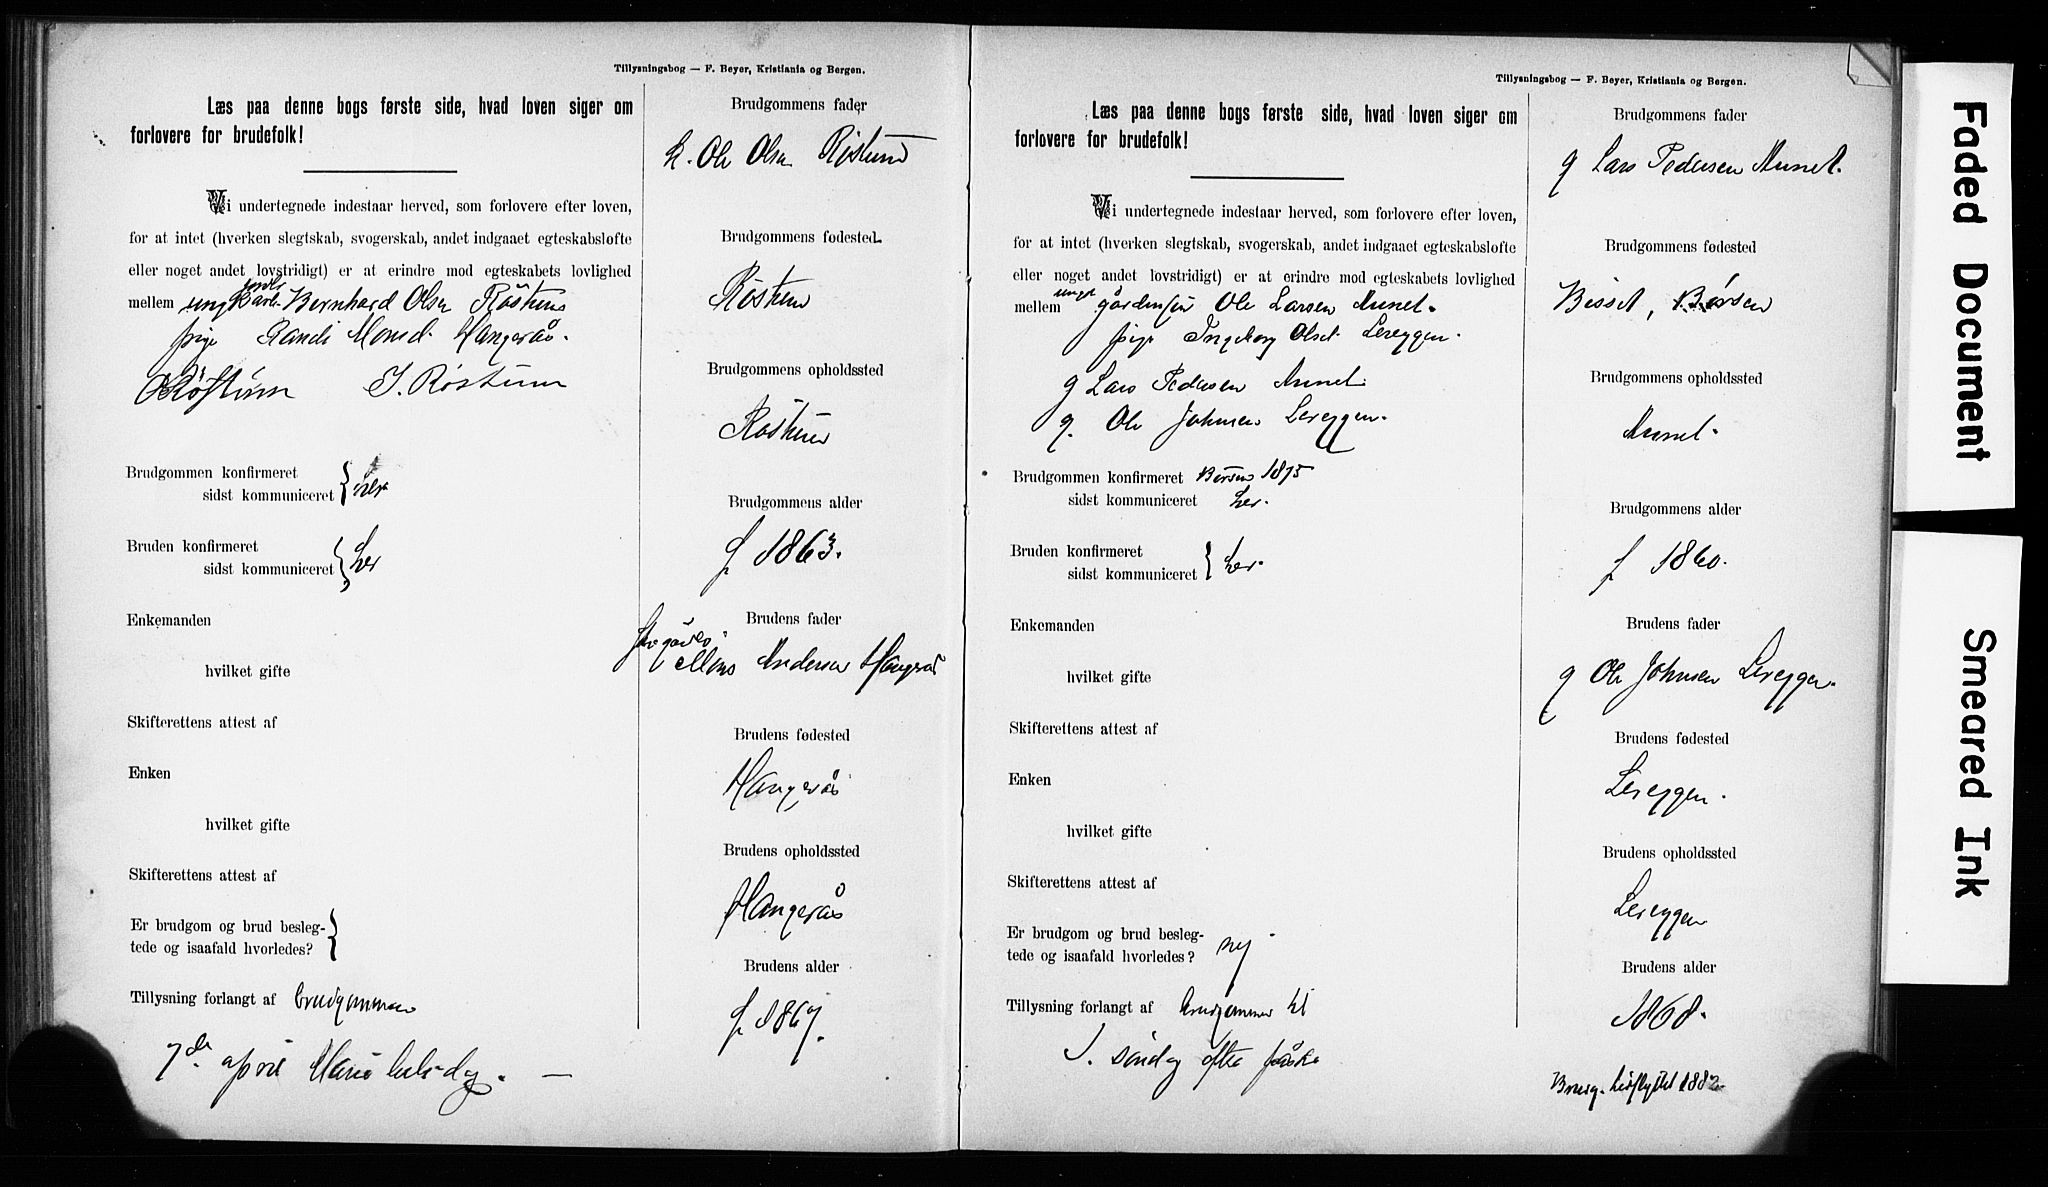 Tillysningsbog — F. Beyer, Kristiania og Bergen.
Læs paa denne bogs første side, hvad loven siger om
forlovere for brudefolk!
Vi undertegnede indestaar herved, som forlovere efter loven,
for at intet (hverken slegtskab, svogerskab, andet indgaaet egteskabsløfte
eller noget andet lovstridigt) er at erindre mod egteskabets lovlighed
mellem ungkarl Bernhard Olsen Røstum
pige Randi Monsd. Hangerås.
Røstum S. Røstum
Brudgommen konfirmeret
sidst kommuniceret } her
Bruden konfirmeret
sidst kommuniceret } her
Enkemanden
hvilket gifte
Skifterettens attest af
Enken
hvilket gifte
Skifterettens attest af
Er brudgom og brud besleg-
tede og isaafald hvorledes? }
Tillysning forlangt af brudgommen
7de april Maria
Brudgommens fader
k. Ole Olsen Røstum
Brudgommens fødested
Røstum
Brudgommens opholdssted
Røstum
Brudgommens alder
f 1863.
Brudens fader
Mons Andersen Hangerås
Brudens fødested
Hangerås
Brudens opholdssted
Hangerås
Brudens alder
f 1867.
Tillysningsbog — F. Beyer, Kristiania og Bergen.
Læs paa denne bogs første side, hvad loven siger om
forlovere for brudefolk!
Vi undertegnede indestaar herved, som forlovere efter loven,
for at intet (hverken slegtskab, svogerskab, andet indgaaet egteskabsløfte
eller noget andet lovstridigt) er at erindre mod egteskabets lovlighed
mellem Ole Larsen Aunet.
pige Ingeborg Olsd. Lereggen.
g Lars Pedersen Aunet.
g. Ole Johnsen Lereggen.
Brudgommen konfirmeret Børsen 1875
sidst kommuniceret her.
Bruden konfirmeret
sidst kommuniceret } her.
Enkemanden
hvilket gifte
Skifterettens attest af
Enken
hvilket gifte
Skifterettens attest af
Er brudgom og brud besleg-
tede og isaafald hvorledes? nej
Tillysning forlangt af brudgommen til
1. søndag efter påske
Brudgommens fader
g Lars Pedersen Aunet.
Brudgommens fødested
Bisset, Børsen
Brudgommens opholdssted
Aunet.
Brudgommens alder
f 1860.
Brudens fader
g Ole Johnsen Lereggen.
Brudens fødested
Lereggen.
Brudens opholdssted
Lereggen
Brudens alder
1868.
Brudg. hidflyttet 1882
Faded Document
Smeared Ink